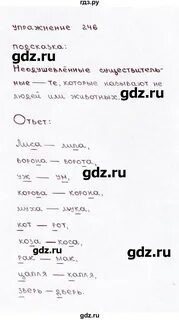 гдз.ру
Упражнение 246
gdz.ru
подсказка:
Неодушевлённые существитель-
ные — те, которые называют не
людей или животных.
gdz.ru
Ответ:
Лиса — липа,
ворона — ворота,
уж — ум,
корова — корона,
муха — мука,
кот — рот,
коза — коса,
рак — мак,
цапля — капля,
зверь — дверь.
gdz.ru